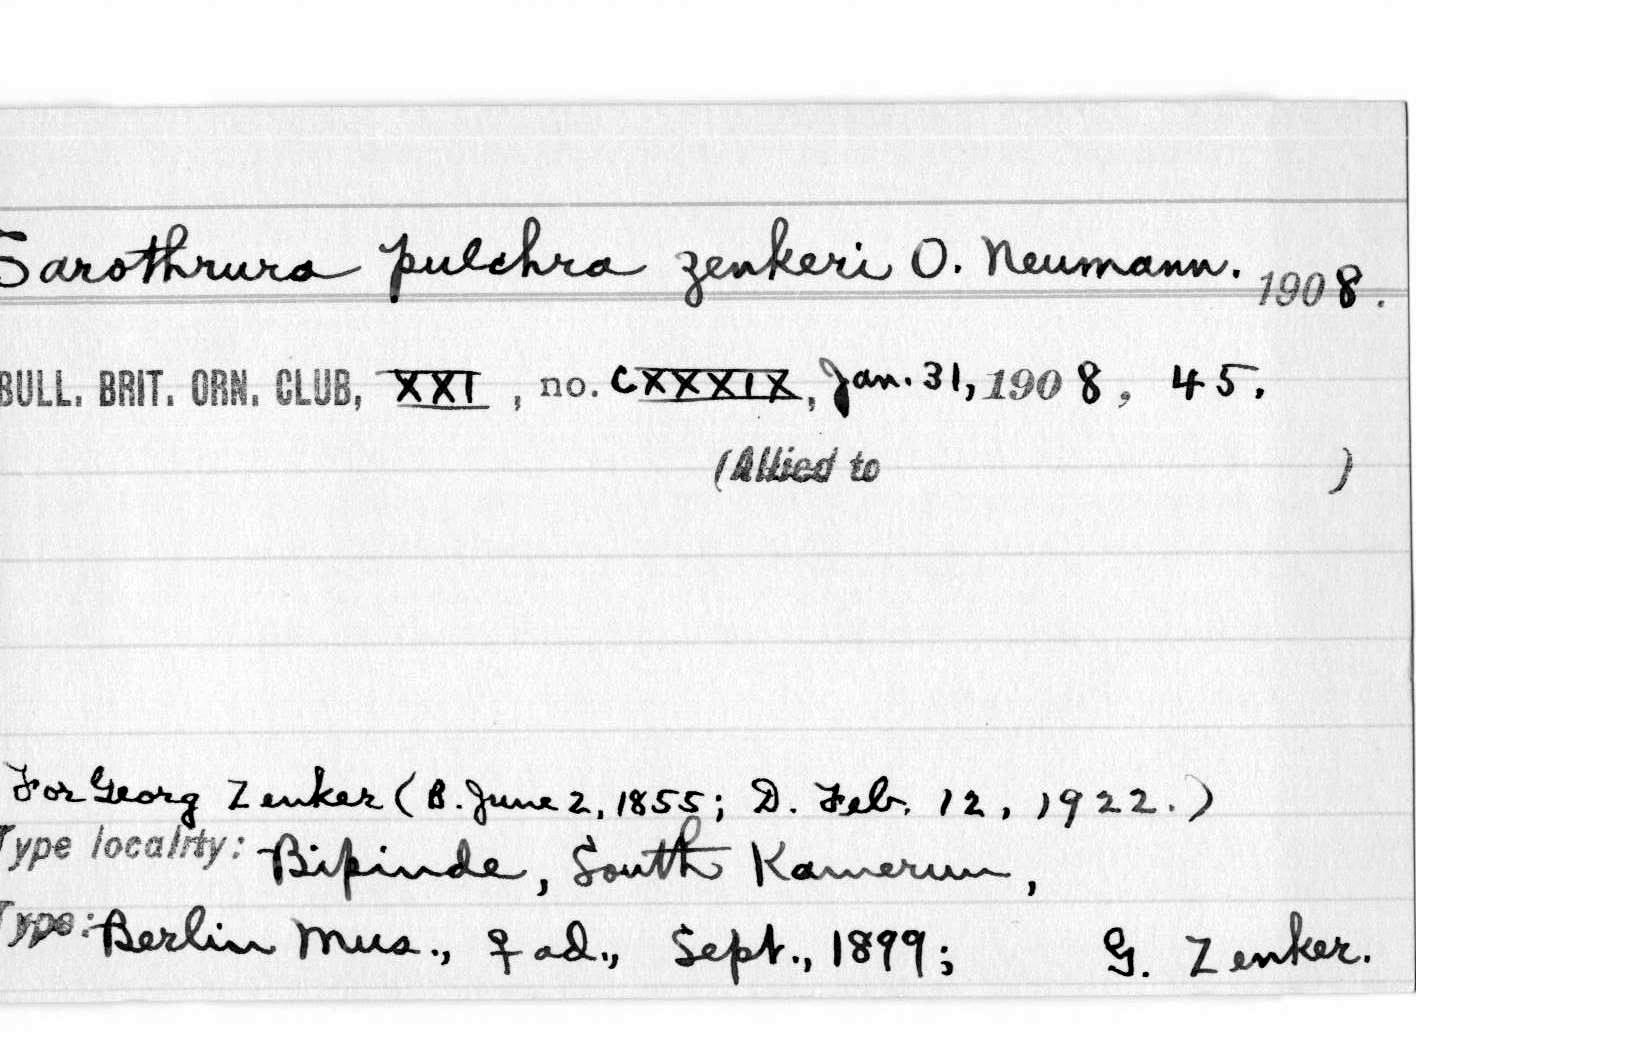 Sarothrura pulchra zenkeri O. Neumann. 1908.
BULL. BRIT. ORN. CLUB, XXI, no. CXXXIX, Jan. 31, 1908, 45.
(Allied to )
For Georg Zenker (B. June 2, 1855; D. Feb. 12, 1922.)
Type locality: Bipinde, South Kamerun,
Type: Berlin Mus., ♀ ad., Sept., 1899; G. Zenker.